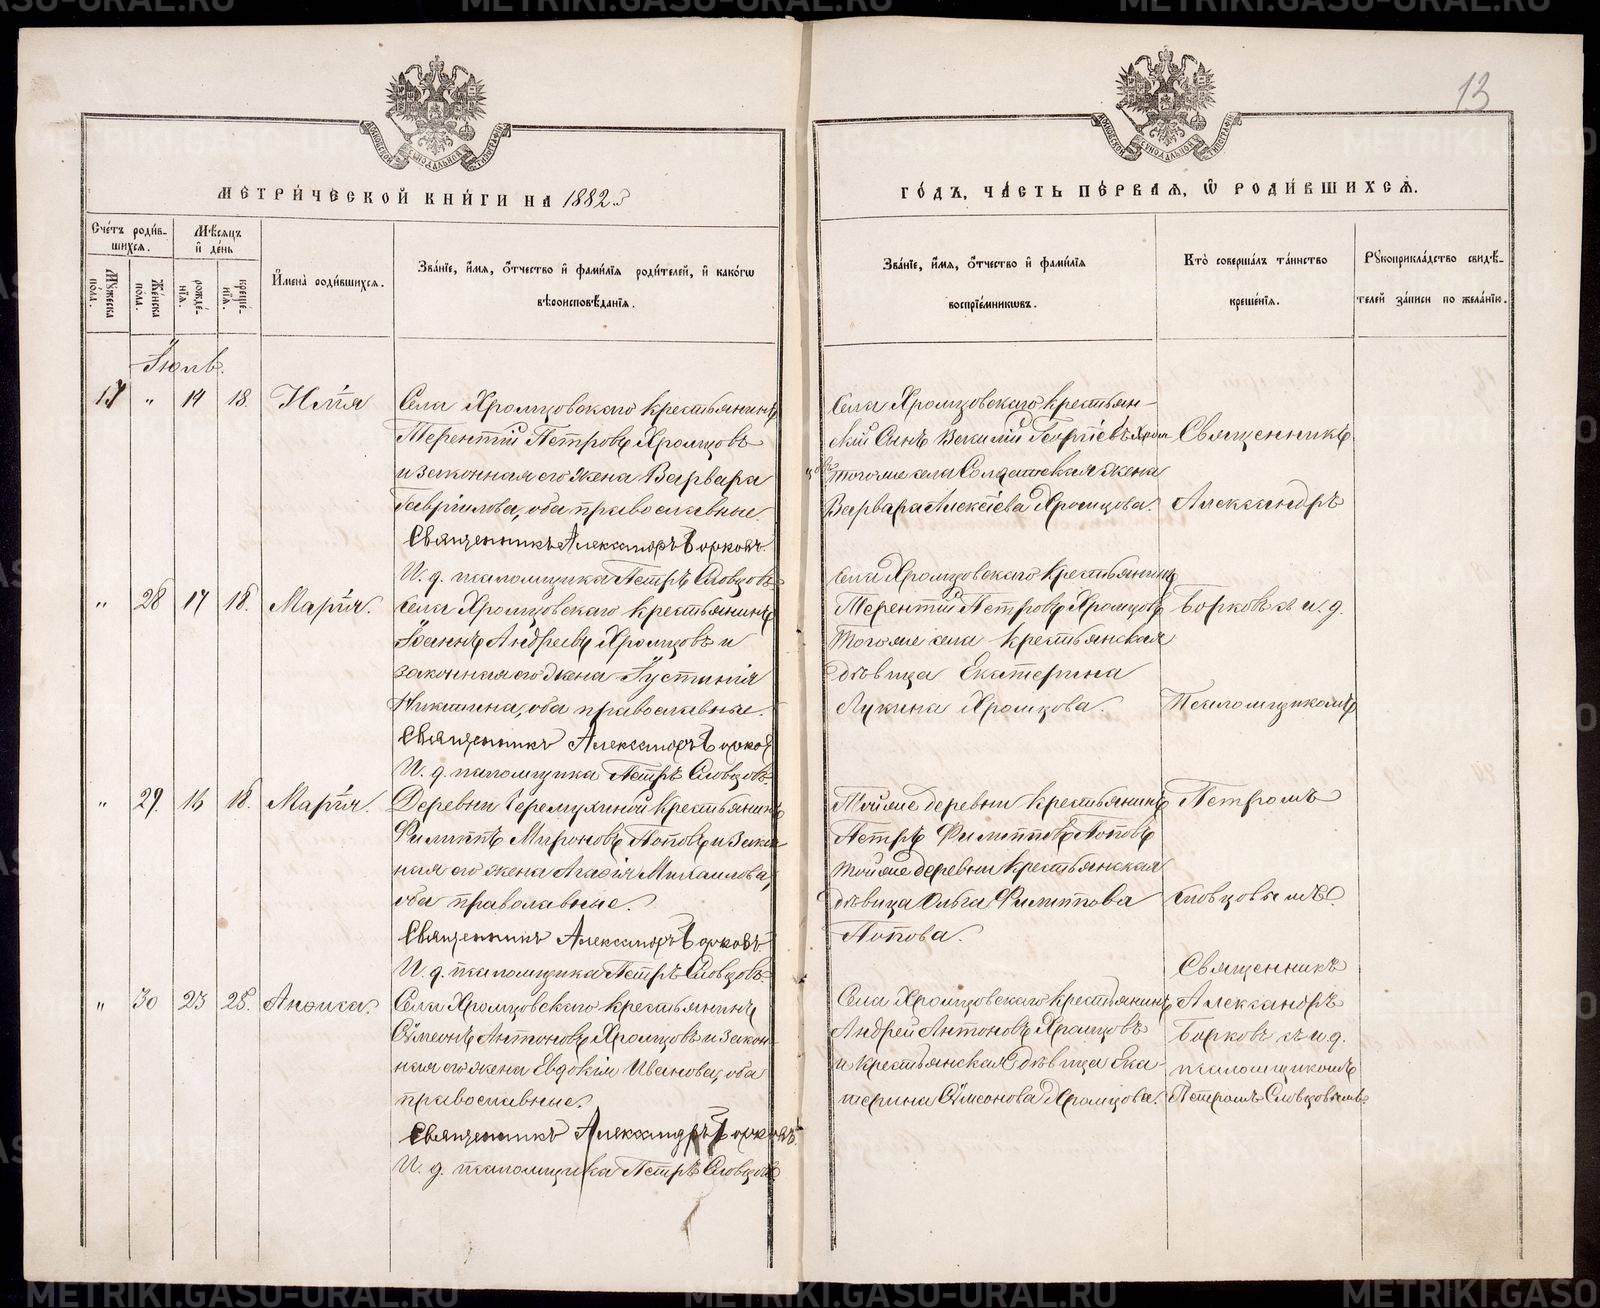 METRIKI.GASO-URAL.RU
13
МЕТРИ́ЧЕСКОЙ КНИ́ГИ НА 1882й
ГО́ДЪ, ЧА́СТЬ ПЕ́РВАЯ, Ѿ РОДИ́ВШИХСѦ.
Сче́тъ роди́в-
шихся.
Мѣ́сяцъ
и҆ де́нь
Мꙋ́жеска по́ла.
Же́нска по́ла.
рожде́-
нїѧ.
креще́-
нїѧ.
И҆мена̀ роди́вшихся.
Зва́нїе, и҆́мя, ѻ҆́тчество и҆ фами́лїя роди́телей, и҆ како́гѡ
вѣроисповѣ́данїя.
Зва́нїе, и҆́мя, ѻ҆́тчество и҆ фами́лїя
воспрїе́мникѡвъ.
Кто̀ соверша́лъ та́инство
креще́нїя.
Рꙋкоприкла́дство свидѣ́-
телей за́писи по жела́нїю.
Іюль.
17 " 14 18. Илія
Села Хромцовскаго крестьянинъ
Терентій Петровъ Хромцовъ
и законная его жена Варвара
Гаврилова, оба православные.
Священникъ Александръ Борковъ.
И. д. псаломщика Петръ Словцовъ
Села Хромцовскаго крестьян-
скій сынъ Василій Георгіевъ Хром
цовъ тогоже села Солдатская жена
Варвара Алексіева Хромцова.
Священникъ
Александръ
" 28 17 18. Марія.
Села Хромцовскаго крестьянинъ
Іоаннъ Андреевъ Хромцовъ и
законная его жена Іустинія
Никитина, оба православные.
Священникъ Александръ Борков
И. д. псаломщика Петръ Словцовъ.
Села Хромцовскаго крестьянинъ
Терентій Петровъ Хромцовъ
Тогоже села крестьянская
дѣвица Екатерина
Лукина Хромцова.
Борковъ съ и. д.
Псаломщикомъ
" 29. 16 18. Марія.
Деревни Черемухиной крестьянинъ
Филиппъ Мироновъ Поповъ и закон-
ная его жена Агаѳія Михаилова,
оба православные.
Священникъ Александръ Борковъ
И. д. псаломщика Петръ Словцовъ.
Тойже деревни крестьянинъ
Петръ Филипповъ Поповъ
тойже деревни крестьянская
дѣвица Ольга Филиппова
Попова.
Петромъ
Словцовымъ.
" 30 23 25. Анѳиса.
Села Хромцовскаго крестьянинъ
Сѵмеонъ Антоновъ Хромцовъ и закон-
ная его жена Евдокія Иванова, оба
православные.
Священникъ Александръ Борковъ.
И. д. псаломщика Петръ Словцовъ
Села Хромцовскаго крестьянинъ
Андрей Антоновъ Хромцовъ
и крестьянская дѣвица Ека-
терина Сѵмеонова Хромцова.
Священникъ
Александръ
Борковъ съ и. д.
псаломщикомъ
Петромъ Словцовымъ.
METRIKI.GASO-URAL.RU